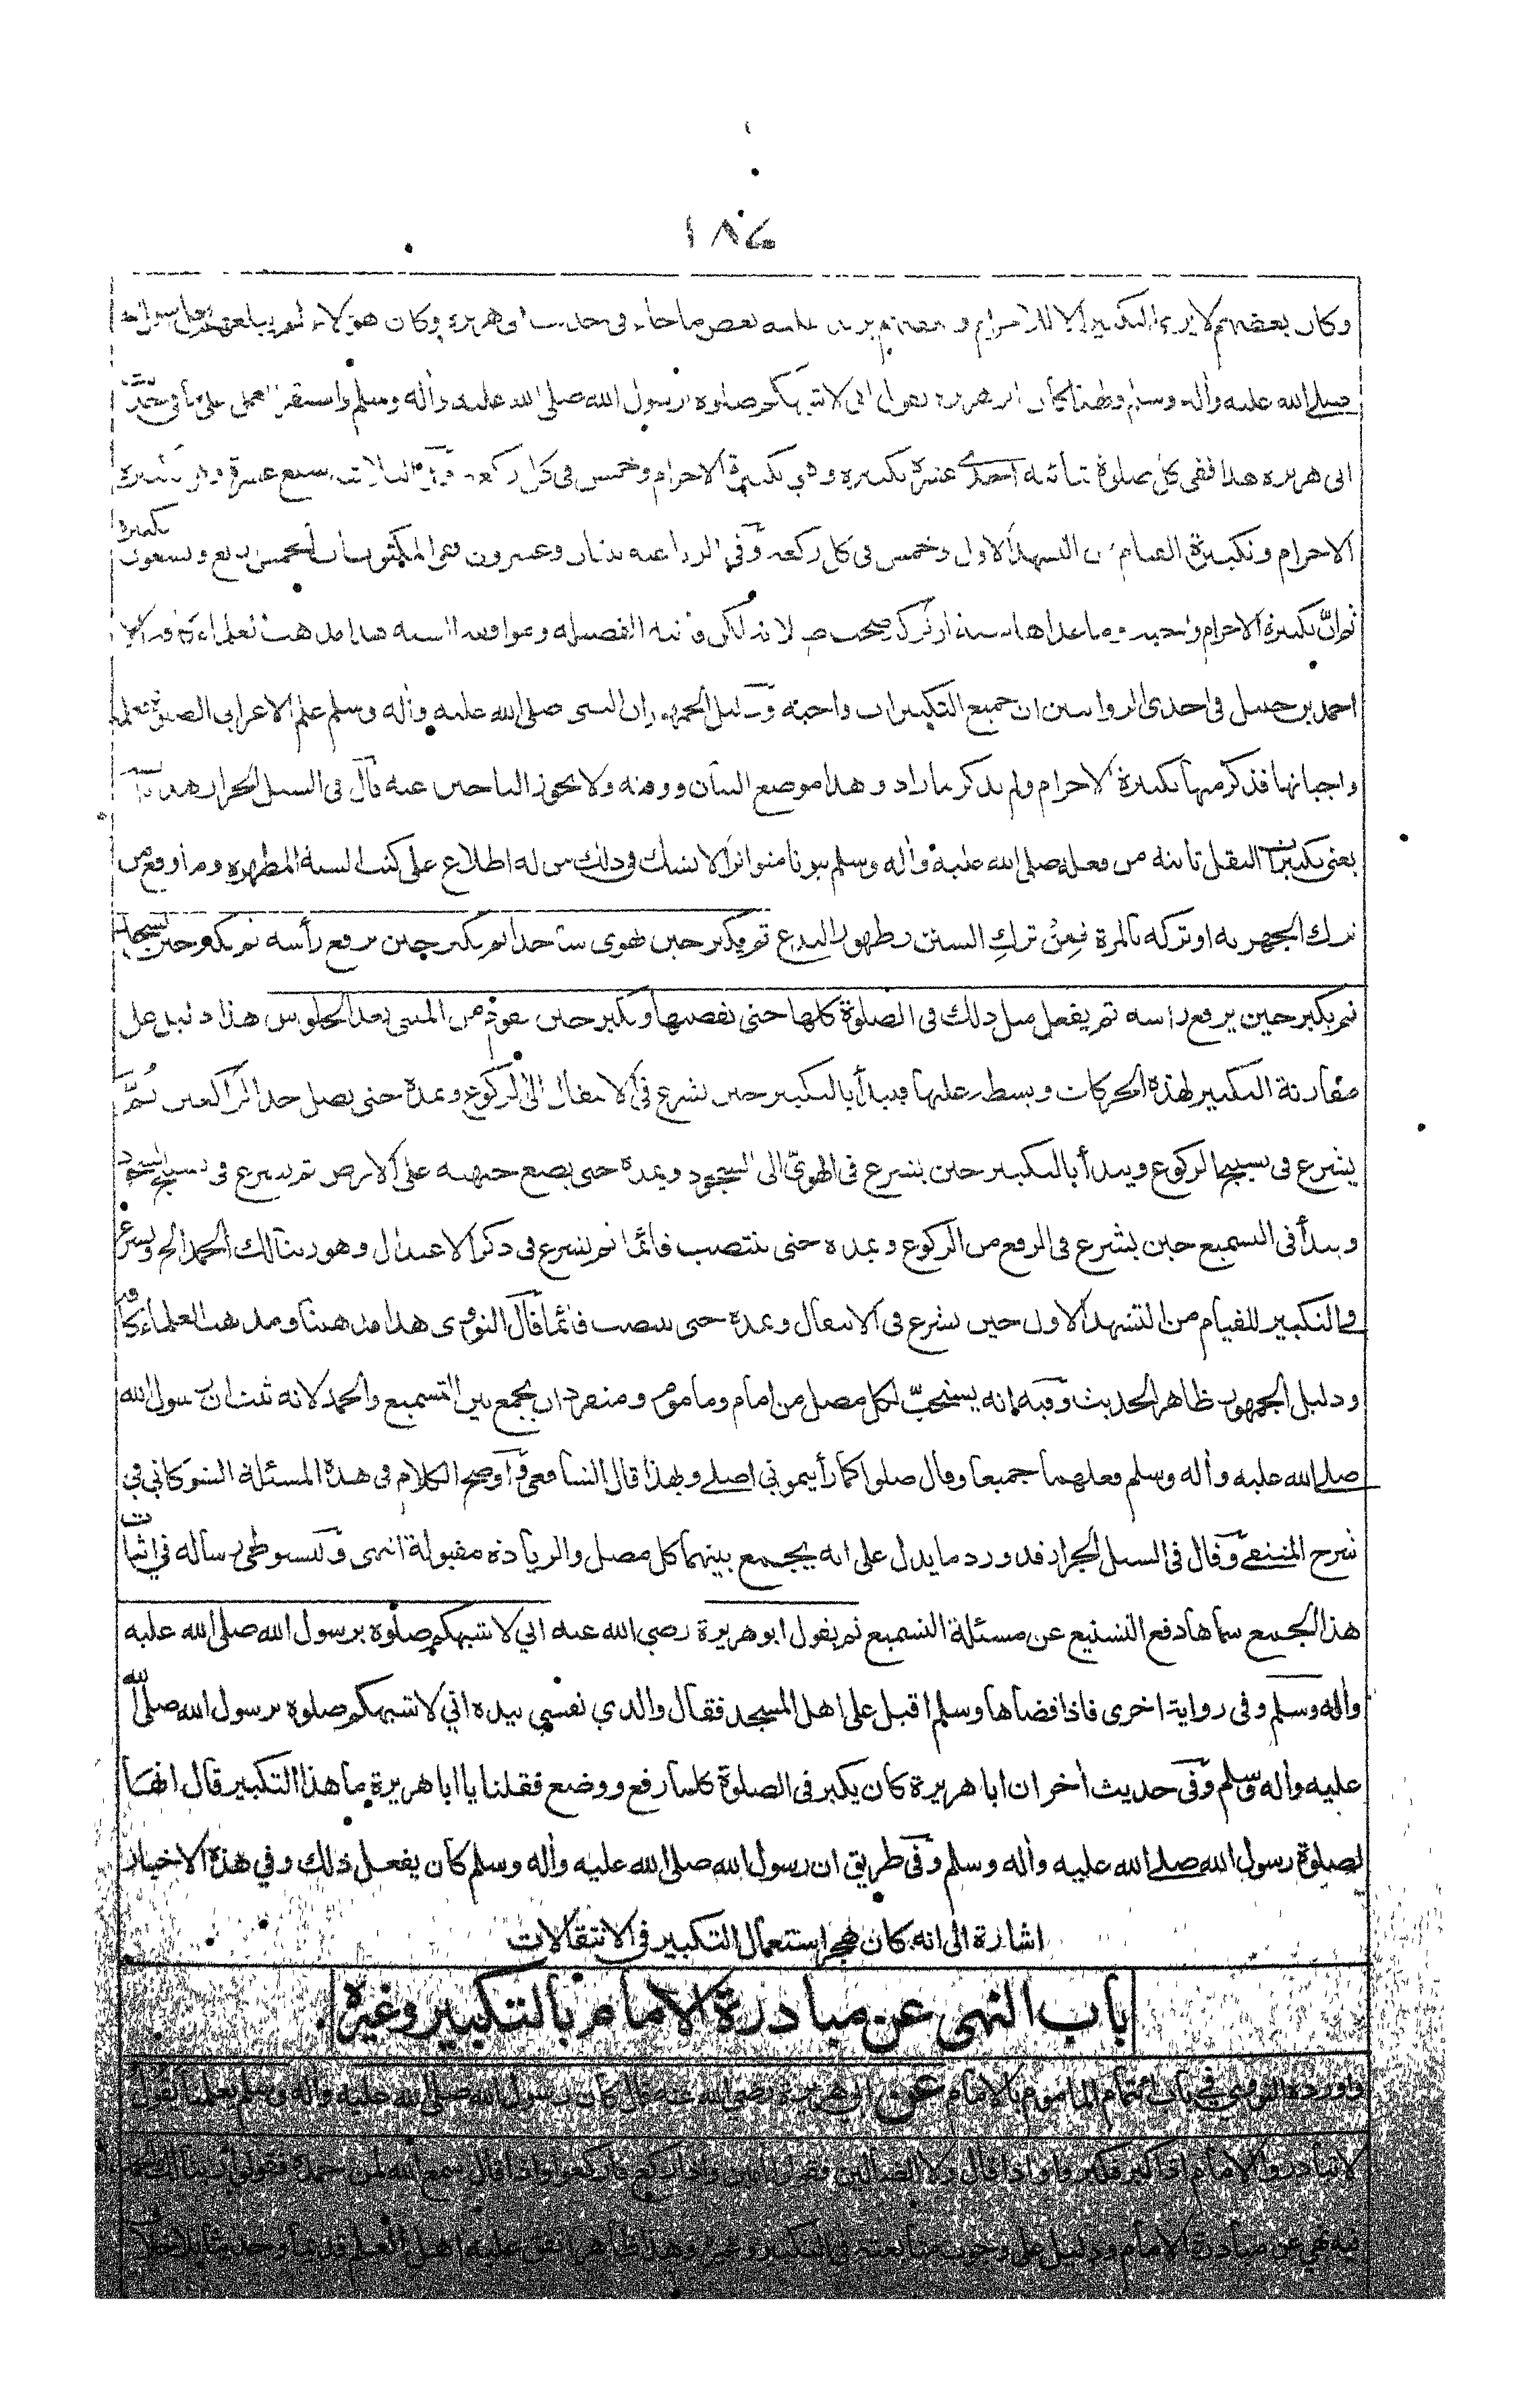 ١٨٤
وكان بعضهم لا يرى التكبير الا للاحرام و بعضهم يزيد عليه بعض ما جاء في حديث ابي هريرة وكان هؤلاء لم يبلغهم فعل رسول الله
صلى الله عليه واٰله وسلم ولهذا كان ابو هريرة يقول اني لاشبهكم صلوة برسول الله صلى الله عليه واٰله وسلم واستقر العمل على ما في حديث
ابي هريرة هذا ففي كل صلوة ثنائية احدى عشرة تكبيرة وهي تكبيرة الاحرام وخمس في كل ركعة وفي الثلاثية سبع عشرة وهي تكبيرة
الاحرام وتكبيرة القيام من التشهد الاول وخمس في كل ركعة وفي الرباعية ثنتان وعشرون ففي المكتوبات الخمس اربع وتسعون تكبيرة
ثم ان تكبيرة الاحرام واجبة وما عداها سنة لو تركه صحت صلاته لكن فاتته الفضيلة وموافقة السنة هذا مذهب العلماء كافة الا
احمد بن حنبل في احدى الروايتين ان جميع التكبيرات واجبة ودليل الجمهور ان النبي صلى الله عليه واٰله وسلم علم الاعرابي الصلوة فعلمه
واجباتها فذكر منها تكبيرة الاحرام ولم يذكر ما زاد وهذا موضع البيان ووقته ولا يجوز التاخير عنه قال في السيل الجرار هذه
يعني تكبيرات النقل ثابتة من فعله صلى الله عليه واٰله وسلم ثبوتا متواترا لا يشك في ذلك من له اطلاع على كتب السنة المطهرة وما وقع من
ترك الجهر به او تركه بالمرة فمن ترك السنن وظهور البدع ثم يكبر حين يهوي ساجدا ثم يكبر حين يرفع رأسه ثم يكبر حين يسجد
ثم يكبر حين يرفع راسه ثم يفعل مثل ذلك في الصلوة كلها حتى يقضيها ويكبر حين يقوم من المثنى بعد الجلوس هذا دليل على
مقارنة التكبير لهذه الحركات وبسطه عليها فيبدأ بالتكبير حين يشرع في الانتقال الى الركوع ويمده حتى يصل حد الراكعين ثم
يشرع في تسبيح الركوع ويبدأ بالتكبير حين يشرع في الهوي الى السجود ويمده حتى يضع جبهته على الارض ثم يشرع في تسبيح السجود
ويبدأ في التسميع حين يشرع في الرفع من الركوع ويمده حتى ينتصب قائما ثم يشرع في ذكر الاعتدال وهو ربنا لك الحمد الخ ويشرع
في التكبير للقيام من التشهد الاول حين يشرع في الانتقال ويمده حتى ينتصب قائما قال النووي هذا مذهبنا ومذهب العلماء كافة
ودليل الجمهور ظاهر الحديث وفيه انه يستحب لكل مصل من امام وماموم ومنفرد ان يجمع بين التسميع والحمد لانه ثبت ان رسول الله
صلى الله عليه واٰله وسلم فعلهما جميعا وقال صلوا كما رأيتموني اصلي وبهذا قال الشافعي واوضح الكلام في هذه المسئلة الشوكاني في
شرح المنتقى وقال في السيل الجرار قد ورد ما يدل على انه يجمع بينهما كل مصل والزيادة مقبولة انتهى وللسيوطي رسالة في اثبات
هذا الجمع سماها دفع التشنيع عن مسئلة التسميع ثم يقول ابو هريرة رضي الله عنه اني لاشبهكم صلوة برسول الله صلى الله عليه
واٰله وسلم وفي رواية اخرى فاذا قضاها وسلم اقبل على اهل المسجد فقال والذي نفسي بيده اني لاشبهكم صلوة برسول الله صلى الله
عليه واٰله وسلم وفي حديث اٰخر ان ابا هريرة كان يكبر في الصلوة كلما رفع ووضع فقلنا يا ابا هريرة ما هذا التكبير قال انها
لصلوة رسول الله صلى الله عليه واٰله وسلم وفي طريق ان رسول الله صلى الله عليه واٰله وسلم كان يفعل ذلك وفي هذه الاخبار
اشارة الى انه كان هجر استعمال التكبير في الانتقالات
باب النهي عن مبادرة الامام بالتكبير وغيره
واورده النووي في باب ائتمام الماموم بالامام عن ابي هريرة رضي الله عنه قال كان رسول الله صلى الله عليه واٰله وسلم يعلمنا يقول
لا تبادروا الامام اذا كبر فكبروا واذا قال ولا الضالين فقولوا اٰمين واذا ركع فاركعوا واذا قال سمع الله لمن حمده فقولوا ربنا لك الحمد
فيه نهي عن مبادرة الامام ودليل على وجوب متابعته في التكبير وغيره وهذا ظاهر اتفق عليه اهل العلم قديما وحديثا بلا خلاف